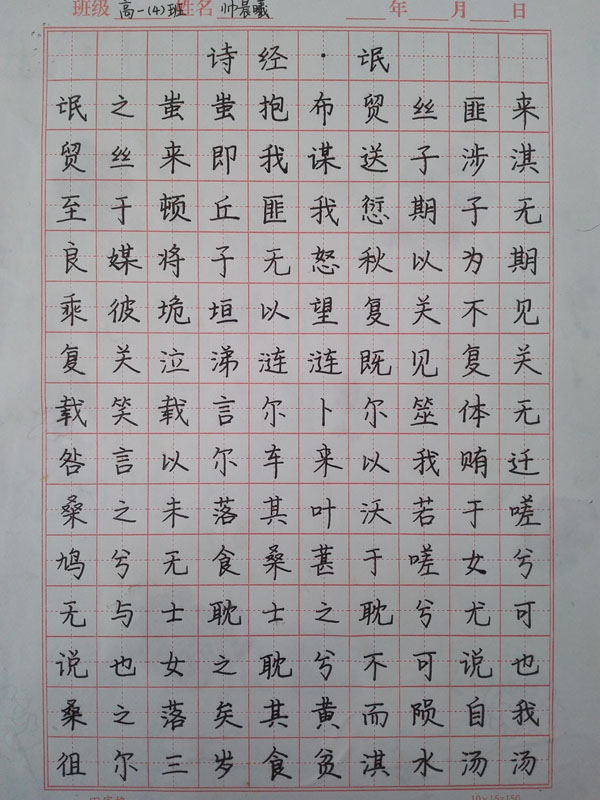 班级 高一(4)班 姓名 帅晨曦 年 月 日
诗经·氓
氓之蚩蚩抱布贸丝匪来
贸丝来即我谋送子涉淇
至于顿丘匪我愆期子无
良媒将子无怒秋以为期
乘彼垝垣以望复关不见
复关泣涕涟涟既见复关
载笑载言尔卜尔筮体无
咎言以尔车来以我贿迁
桑之未落其叶沃若于嗟
鸠兮无食桑葚于嗟女兮
无与士耽士之耽兮尤可
说也女之耽兮不可说也
桑之落矣其黄而陨自我
徂尔三岁食贫淇水汤汤
10×15=150